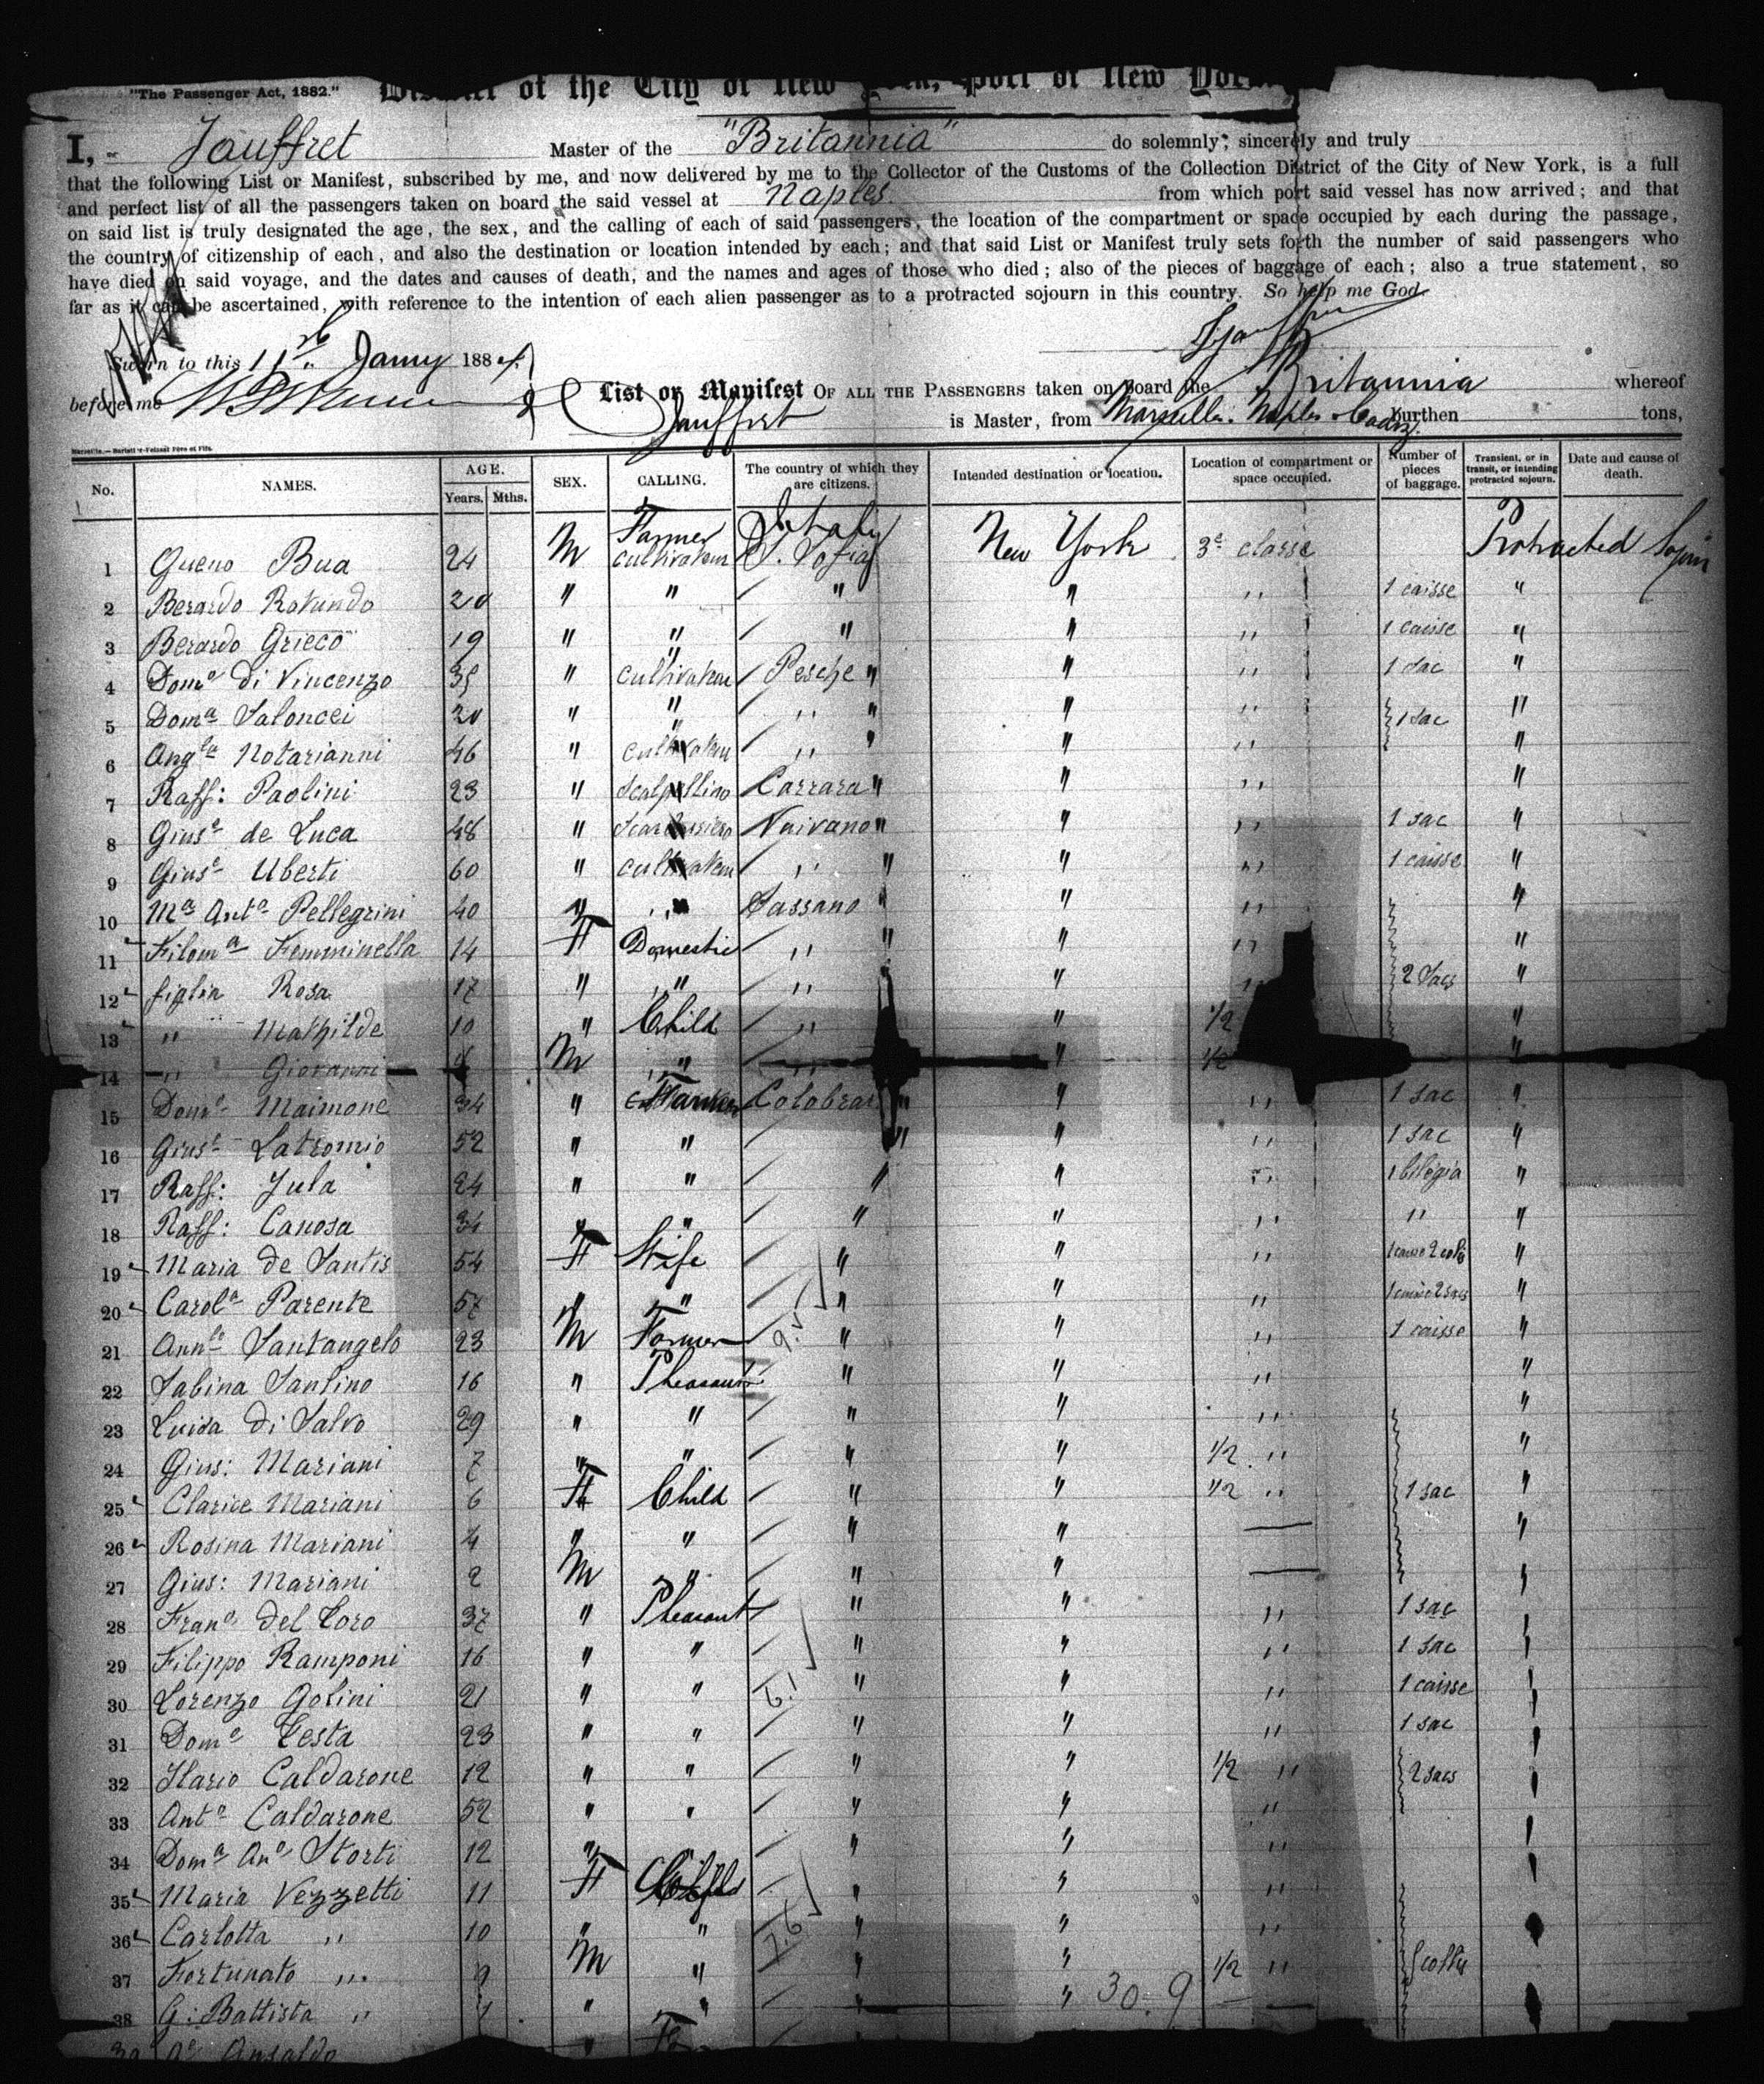 "The Passenger Act, 1882."
District of the City of New York, Port of New York
I, Jauffret Master of the "Britannia" do solemnly, sincerely and truly
that the following List or Manifest, subscribed by me, and now delivered by me to the Collector of the Customs of the Collection District of the City of New York, is a full
and perfect list of all the passengers taken on board the said vessel at Naples. from which port said vessel has now arrived; and that
on said list is truly designated the age, the sex, and the calling of each of said passengers, the location of the compartment or space occupied by each during the passage,
the country of citizenship of each, and also the destination or location intended by each; and that said List or Manifest truly sets forth the number of said passengers who
have died on said voyage, and the dates and causes of death, and the names and ages of those who died; also of the pieces of baggage of each; also a true statement, so
far as it can be ascertained, with reference to the intention of each alien passenger as to a protracted sojourn in this country. So help me God
Sworn to this 11th Jany 188
before me
List or Manifest OF ALL THE PASSENGERS taken on board the Britannia whereof
Jauffret is Master, from Marseille. Naples Cadiz burthen tons,
No. NAMES. AGE. Years. Mths. SEX. CALLING. The country of which they are citizens. Intended destination or location. Location of compartment or space occupied. Number of pieces of baggage. Transient, or in transit, or intending protracted sojourn. Date and cause of death.
1 Gueno Bua 24 M Farmer cultivateur Italy S. Sofia New York 3e classe Protracted
2 Berardo Rotundo 20 " " " " " 1 caisse "
3 Berardo Grieco 19 " " " " " 1 caisse "
4 Domo di Vincenzo 35 " cultivateur Pesche " " " 1 sac "
5 Doma Saloncei 20 " " " " " " 1 sac "
6 Angla Notarianni 46 " cultivateur " " " " "
7 Raff: Paolini 23 " Scalpellino Carrara " " " "
8 Giuse de Luca 48 " Vairano " " " 1 sac "
9 Giuse Uberti 60 " cultivateur " " " " 1 caisse "
10 Ma Anta Pellegrini 40 " " Sassano " " " "
11 Filoma Femminella 14 F Domestic " " " " "
12 figlia Rosa 17 " " " " " 2 sacs "
13 " Mathilde 10 " Child " " 1/2 "
14 " Giovanni M " " " 1/2 "
15 Domo Maimone 34 " Farmer Colobrar " " " 1 sac "
16 Giuse Latromio 52 " " " " " 1 sac "
17 Raff: Jula 24 " " " " " 1 "
18 Raff: Canosa 34 " " " " " " "
19 Maria de Santis 54 F Wife " " " "
20 Carola Parente 57 " " " " " "
21 Annlo Santangelo 23 M Farmer " " " 1 caisse "
22 Sabina Santino 16 " Pheasant " " " "
23 Luisa di Salvo 29 " " " " " "
24 Gius: Mariani 7 " " " " 1/2 " "
25 Clarice Mariani 6 F Child " " 1/2 " 1 sac "
26 Rosina Mariani 4 " " " " — "
27 Gius: Mariani 2 M " " " — "
28 Frano del Toro 37 " Pheasant " " " 1 sac "
29 Filippo Ramponi 16 " " " " " 1 sac "
30 Lorenzo Golini 21 " " " " " 1 caisse "
31 Domo Testa 23 " " " " " 1 sac "
32 Ilario Caldarone 12 " " " " 1/2 " 2 sacs "
33 Anto Caldarone 52 " " " " " "
34 Doma Ana Storti 12 " " " " "
35 Maria Vezzetti 11 F Child " " "
36 Carlotta " 10 " " " " "
37 Fortunato " 9 M " " " 1/2 "
38 G: Battista " " " " " 30.9 —
39 Ansaldo